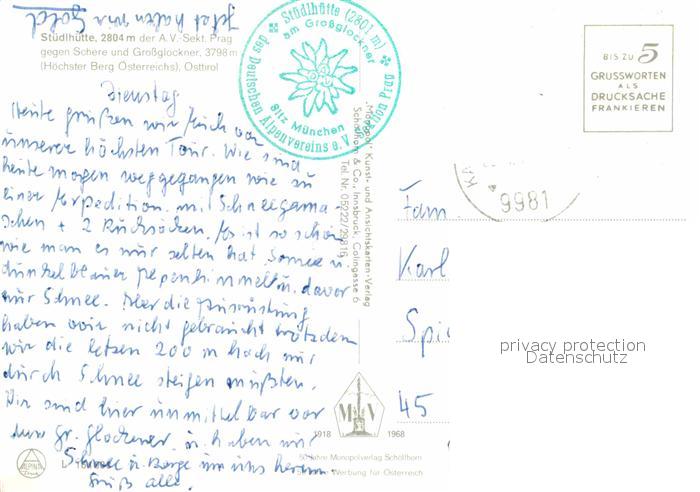 Jetzt haben wir Gold
Stüdlhütte, 2804 m der A.V.-Sekt. Prag
gegen Schere und Großglockner, 3798 m
(Höchster Berg Österreichs), Osttirol
Stüdlhütte (2801 m)
am Großglockner
des Deutschen Alpenvereins e.V. Sektion Prag
Sitz München
BIS ZU 5
GRUSSWORTEN
ALS
DRUCKSACHE
FRANKIEREN
Dienstag
Heute grüßen wir Euch von
unserer höchsten Tour. Wir sind
heute morgen weggegangen wie zu
einer Expedition mit Schneegama-
schen + 2 Rucksäcken. Es ist so schön
wie man es nur selten hat. Sonne u.
dunkelblauer Alpenhimmel u. davor
nur Schnee. Aber die Ausrüstung
haben wir nicht gebraucht trotzdem
wir die letzen 200 m hoch nur
durch Schnee steigen mußten.
Wir sind hier unmittelbar vor
dem Gr. Glockner u. haben nur
Schnee u. Berge um uns herum.
Grüß alle.
„Monopol“ Kunst- und Ansichtskarten-Verlag
Schöllhorn & Co., Innsbruck, Colingasse 6
Tel. Nr. 05222/29816
KA
9981
Fam.
Karl
45
privacy protection
Datenschutz
M V
1918 1968
50 Jahre Monopolverlag Schöllhorn
Werbung für Österreich
ALPINA